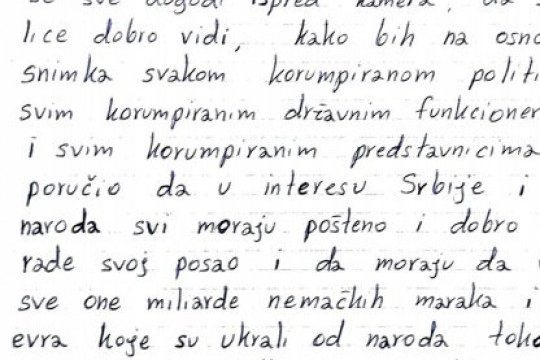 se sve dogodi ispred kamera, da s
lice dobro vidi, kako bih na osno
snimka svakom korumpiranom politi
svim korumpiranim državnim funkcioner
i svim korumpiranim predstavnicima
poručio da u interesu Srbije i
naroda svi moraju pošteno i dobro
rade svoj posao i da moraju da
sve one milijarde nemačkih maraka i
evra koje su ukrali od naroda toko